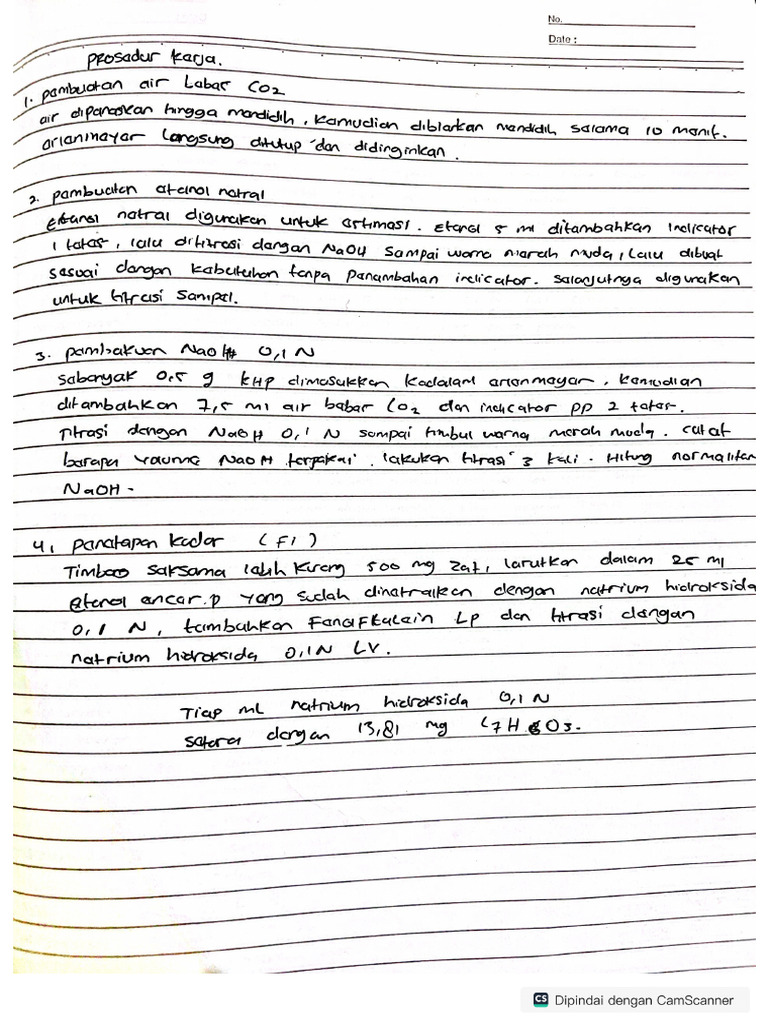 No.
Date :
Prosedur kerja.
1. pembuatan air bebas CO2
air dipanaskan hingga mendidih, kemudian dibiarkan mendidih selama 10 menit.
erlenmeyer langsung ditutup dan didinginkan.
2. pembuatan etanol netral
Etanol netral digunakan untuk estimasi. Etanol 5 ml ditambahkan indicator
1 tetes, lalu dititrasi dengan NaOH sampai warna merah muda, lalu dibuat
sesuai dengan kebutuhan tanpa penambahan indicator. selanjutnya digunakan
untuk titrasi sampel.
3. pembakuan NaOH 0,1 N
sebanyak 0,5 g KHP dimasukkan kedalam erlenmeyer, kemudian
ditambahkan 7,5 ml air bebas CO2 dan indicator pp 2 tetes.
Titrasi dengan NaOH 0,1 N sampai timbul warna merah muda. catat
berapa volume NaOH terpakai. lakukan titrasi 3 kali. Hitung normalitas
NaOH.
4. penetapan kadar (FI)
Timbang saksama lebih kurang 500 mg zat, larutkan dalam 25 ml
etanol encer.p yang sudah dinetralkan dengan natrium hidroksida
0,1 N, tambahkan Fenolftalein LP dan titrasi dengan
natrium hidroksida 0,1N LV.
Tiap ml natrium hidroksida 0,1 N
setara dengan 13,81 mg C7H6O3.
CS Dipindai dengan CamScanner